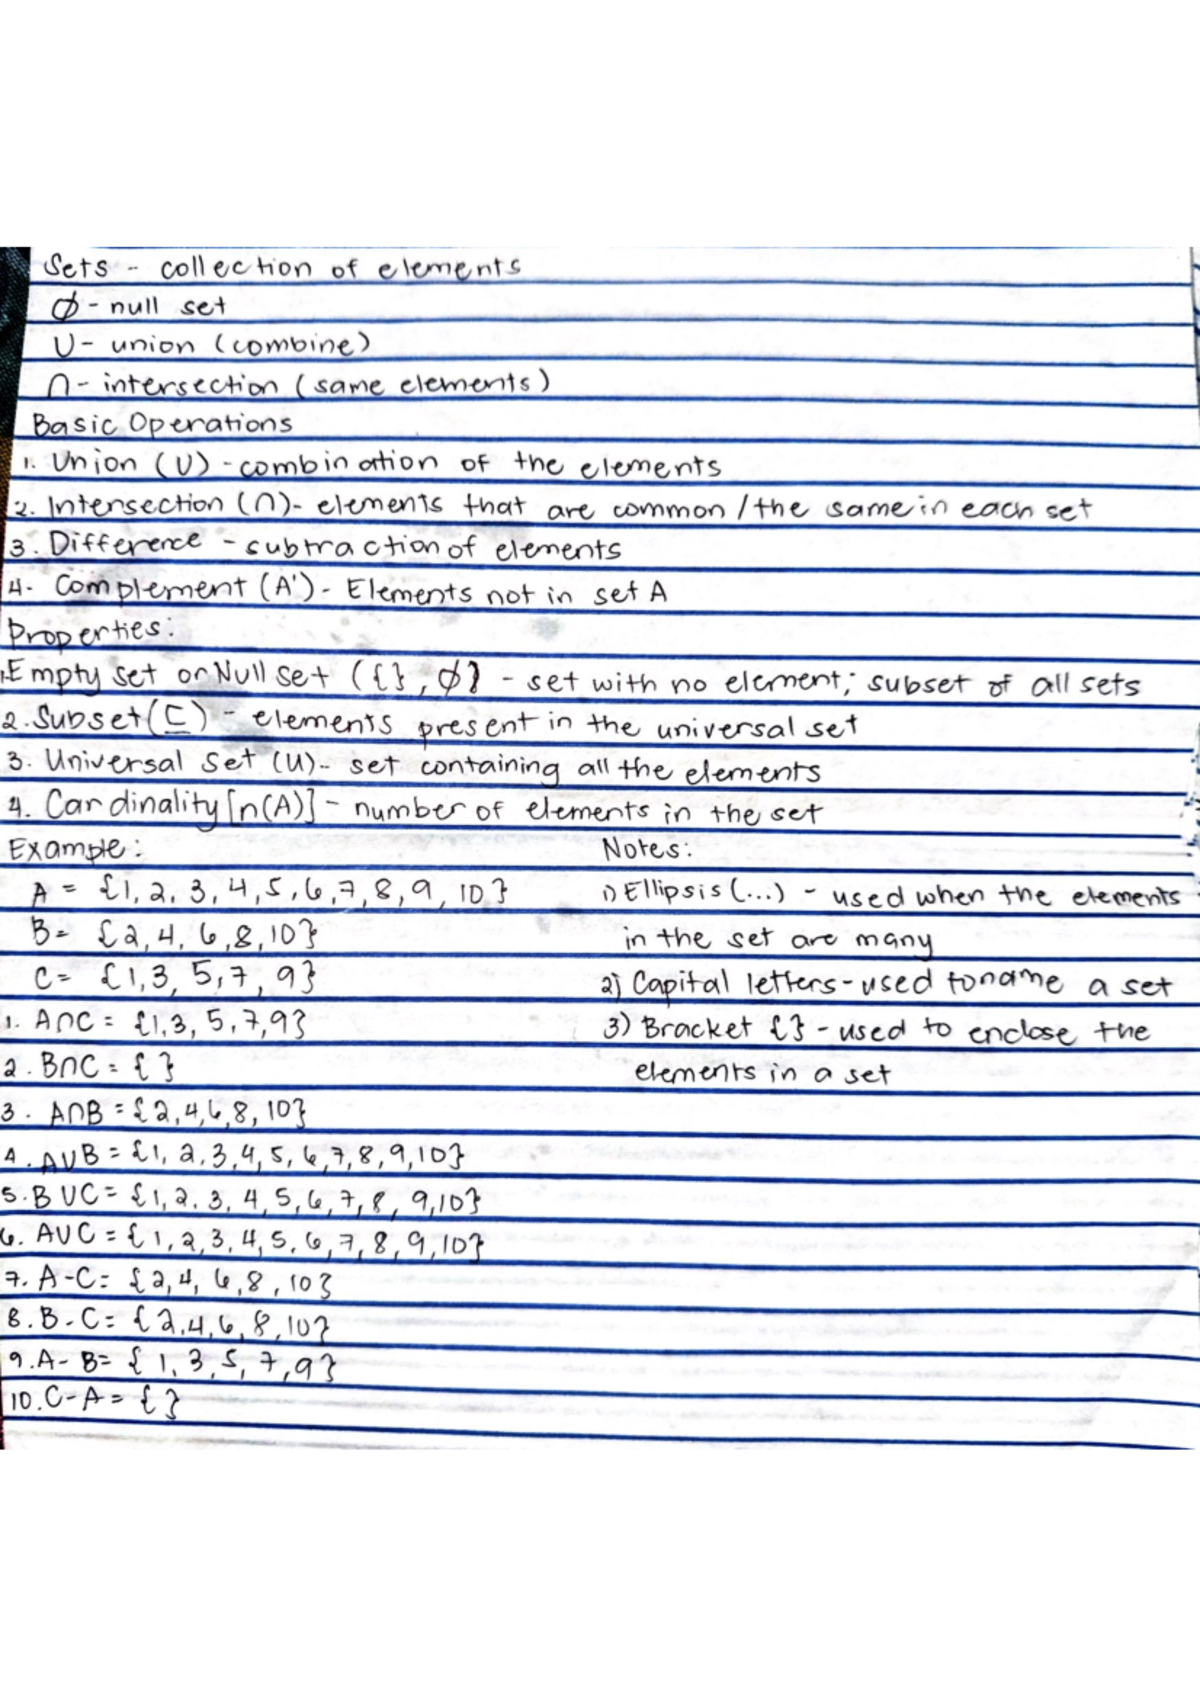 Sets - collection of elements
∅ - null set
U - union (combine)
∩ - intersection (same elements)
Basic Operations
1. Union (U) - combination of the elements
2. Intersection (∩) - elements that are common / the same in each set
3. Difference - subtraction of elements
4. Complement (A') - Elements not in set A
Properties:
1. Empty set or Null set ({ }, ∅} - set with no element; subset of all sets
2. Subset (⊆) - elements present in the universal set
3. Universal Set (U) - set containing all the elements
4. Cardinality [n(A)] - number of elements in the set
Example:
A = {1, 2, 3, 4, 5, 6, 7, 8, 9, 10}
B = {2, 4, 6, 8, 10}
C = {1, 3, 5, 7, 9}
1. A∩C = {1, 3, 5, 7, 9}
2. B∩C = { }
3. A∩B = {2, 4, 6, 8, 10}
4. AUB = {1, 2, 3, 4, 5, 6, 7, 8, 9, 10}
5. BUC = {1, 2, 3, 4, 5, 6, 7, 8, 9, 10}
6. AUC = {1, 2, 3, 4, 5, 6, 7, 8, 9, 10}
7. A-C = {2, 4, 6, 8, 10}
8. B-C = {2, 4, 6, 8, 10}
9. A-B = {1, 3, 5, 7, 9}
10. C-A = { }
Notes:
1) Ellipsis (...) - used when the elements
in the set are many
2) Capital letters - used to name a set
3) Bracket { } - used to enclose the
elements in a set